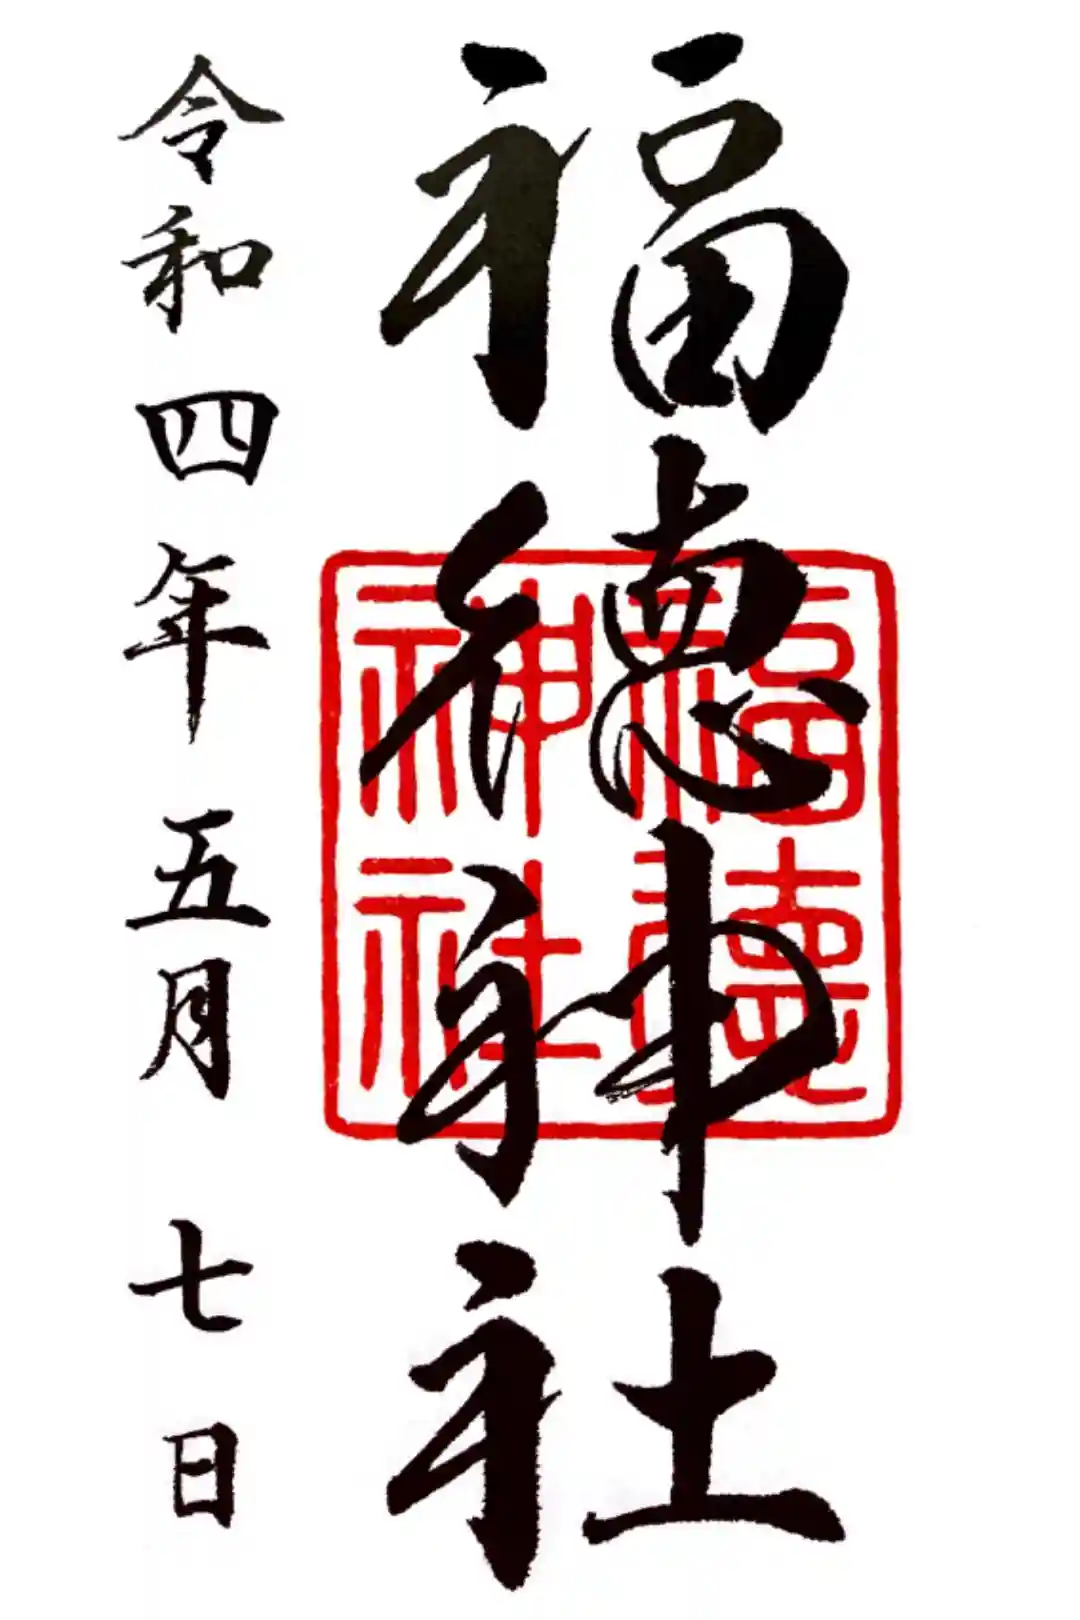 福德神社
福德
神社
令和四年五月七日